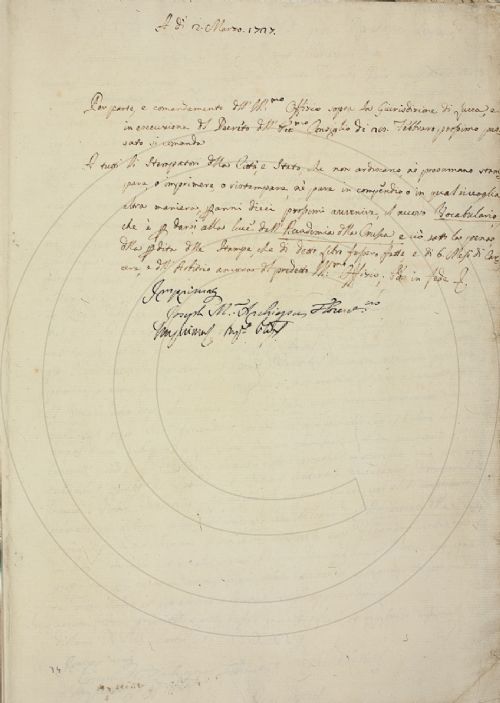 A dì 12. Marzo. 1727.
Per parte, e comandamento dell' Ill.mo Offizio sopra la Giurisdizione di Lucca, e
in esecuzione del Decreto dell' Ecc.mo Consiglio de' Febbraro prossimo pas
sato si comanda
A tutti li Stampatori della Città e Stato che non ardiscano, nè presumano stam
pare, o imprimere o ristampare, nè pure in compendio o in qual si voglia
altra maniera, p anni dieci prossimi avvenire, il nuovo Vocabulario,
che è p darsi alla luce dall' Accademia della Crusca, e ciò sotto la pena
della pdita delle Stampe che di detto libro fossero fatte e di 6 Mesi di Car
cere, e dell' Arbitrio ancora del predetto Ill.mo Offizio; in fede
Imprimatur
Joseph M.a Archiepus Floren
Imprimatur